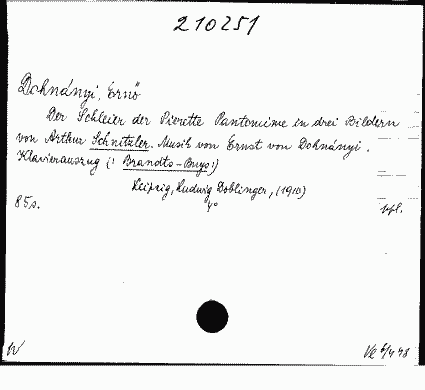 210251
Dohnányi, Ernő
Der Schleier der Pierette Pantomime in drei Bildern
von Arthur Schnitzler. Musik von Ernst von Dohnányi.
Klavierauszug (: Brandts-Buys:)
Leipzig, Ludwig Doblinger, (1910)
85s. 4°
W Ve